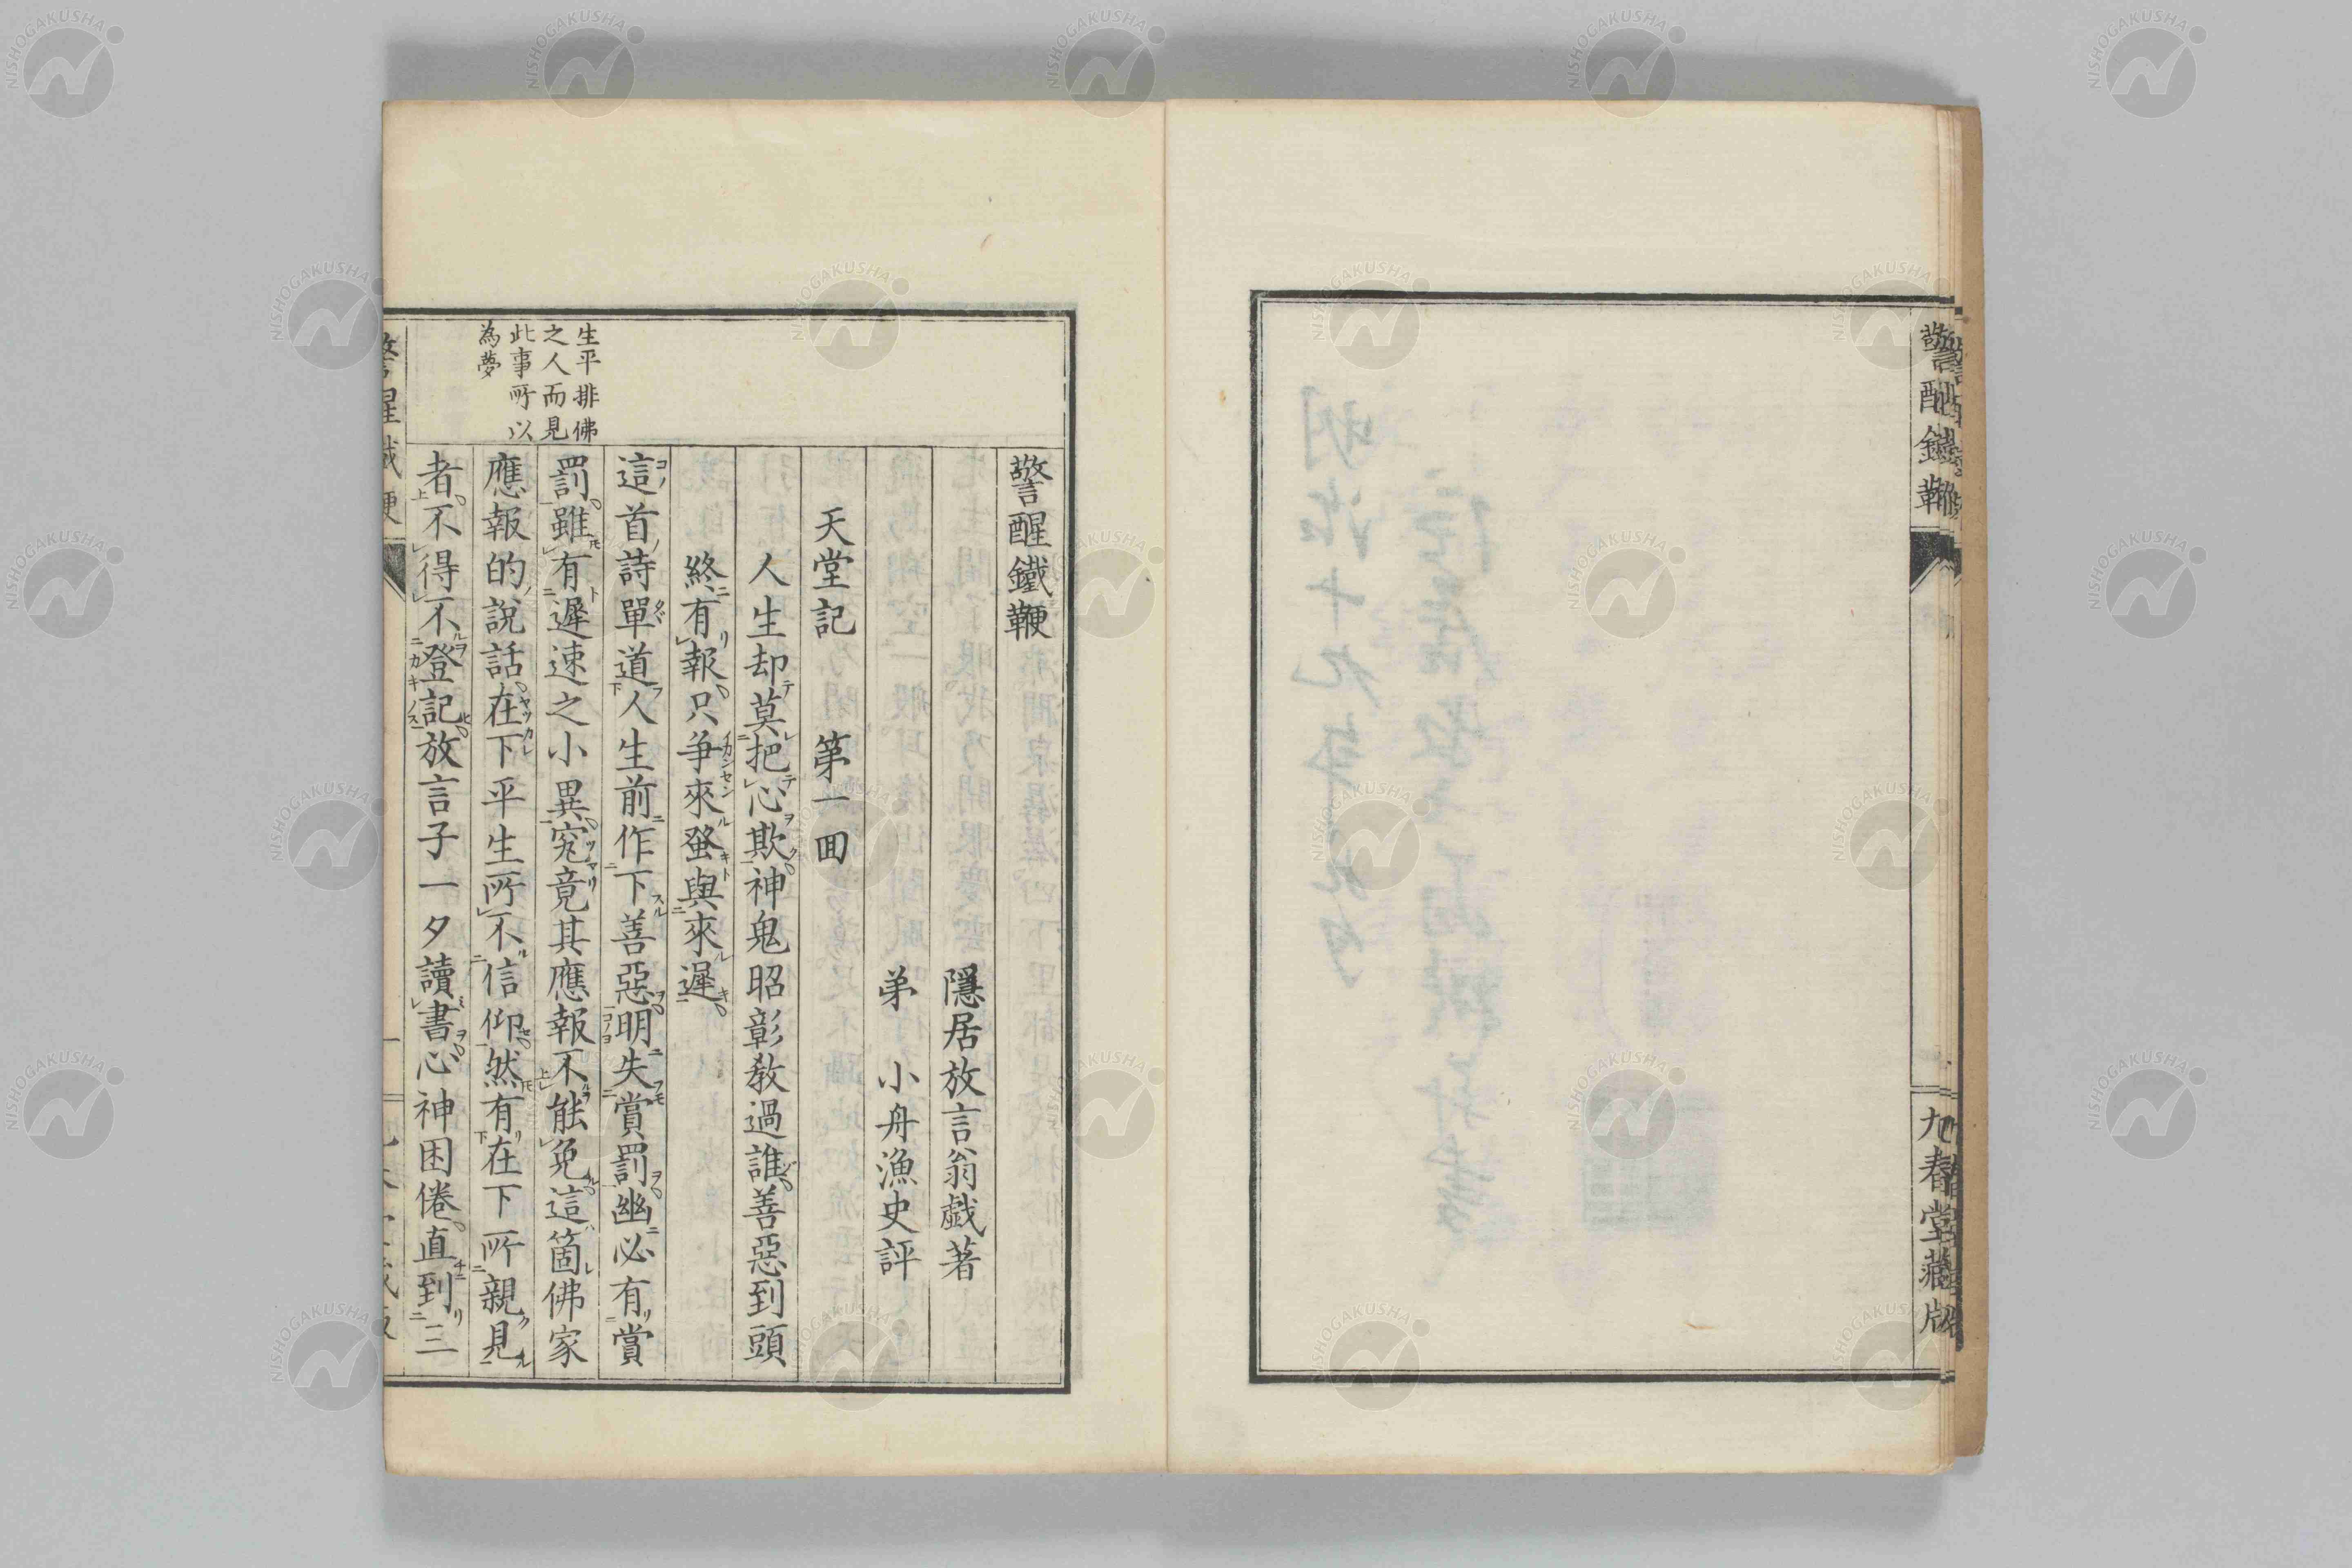 警醒鐵鞭
九春堂藏版
警醒鐵鞭
隱居放言翁戲著
弟 小舟漁史評
天堂記 第一回
人生却莫把心欺神鬼昭彰教過誰善惡到頭
終有報只争來發與來遲
這首詩單道人生前作下善惡明失賞罰幽必有賞
罰雖有遲速之小異究竟其應報不能免這箇佛家
應報的說話在下平生所不信仰然有在下所親見
者不得不登記放言子一夕讀書心神困倦直到三
生平排佛
之人而見
此事所以
為夢
NISHOGAKUSHA